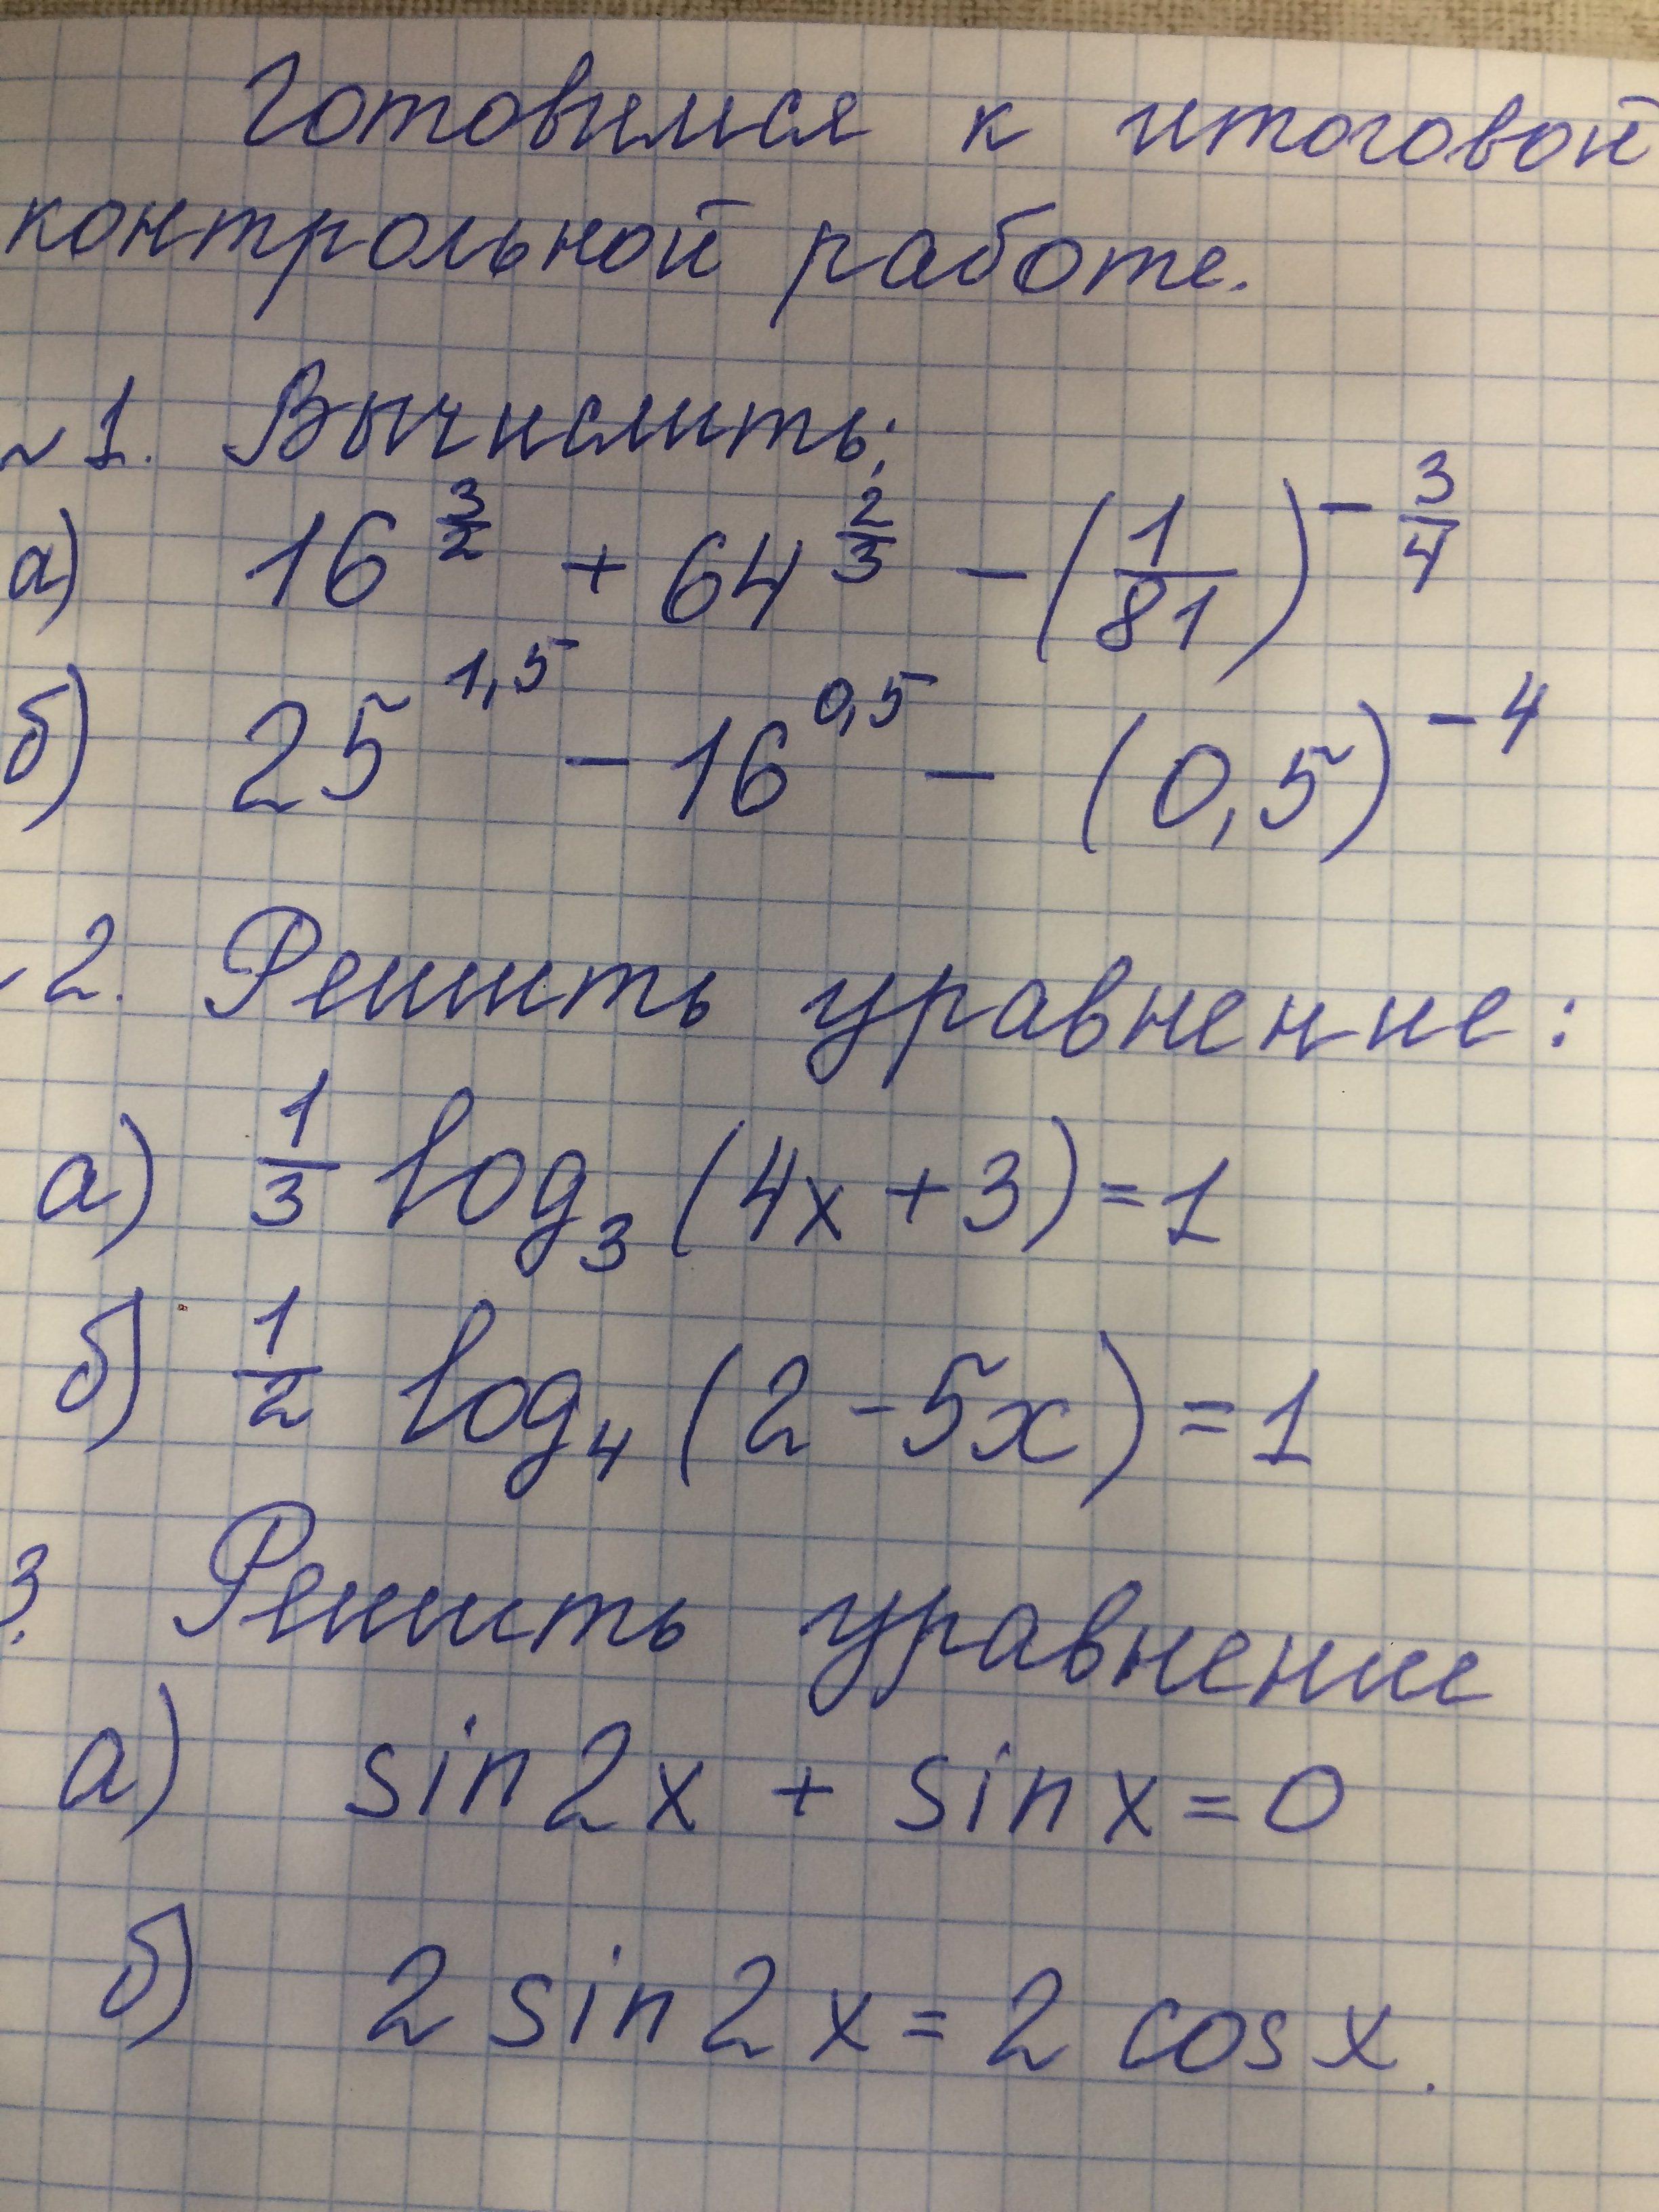 Готовимся к итоговой
контрольной работе.
№1. Вычислить:
а) 16^(3/2) + 64^(2/3) - (1/81)^(-3/4)
б) 25^(1,5) - 16^(0,5) - (0,5)^(-4)
2. Решить уравнение:
а) 1/3 log₃ (4x + 3) = 1
б) 1/2 log₄ (2 - 5x) = 1
3. Решить уравнение
а) sin 2x + sin x = 0
б) 2 sin 2x = 2 cos x.